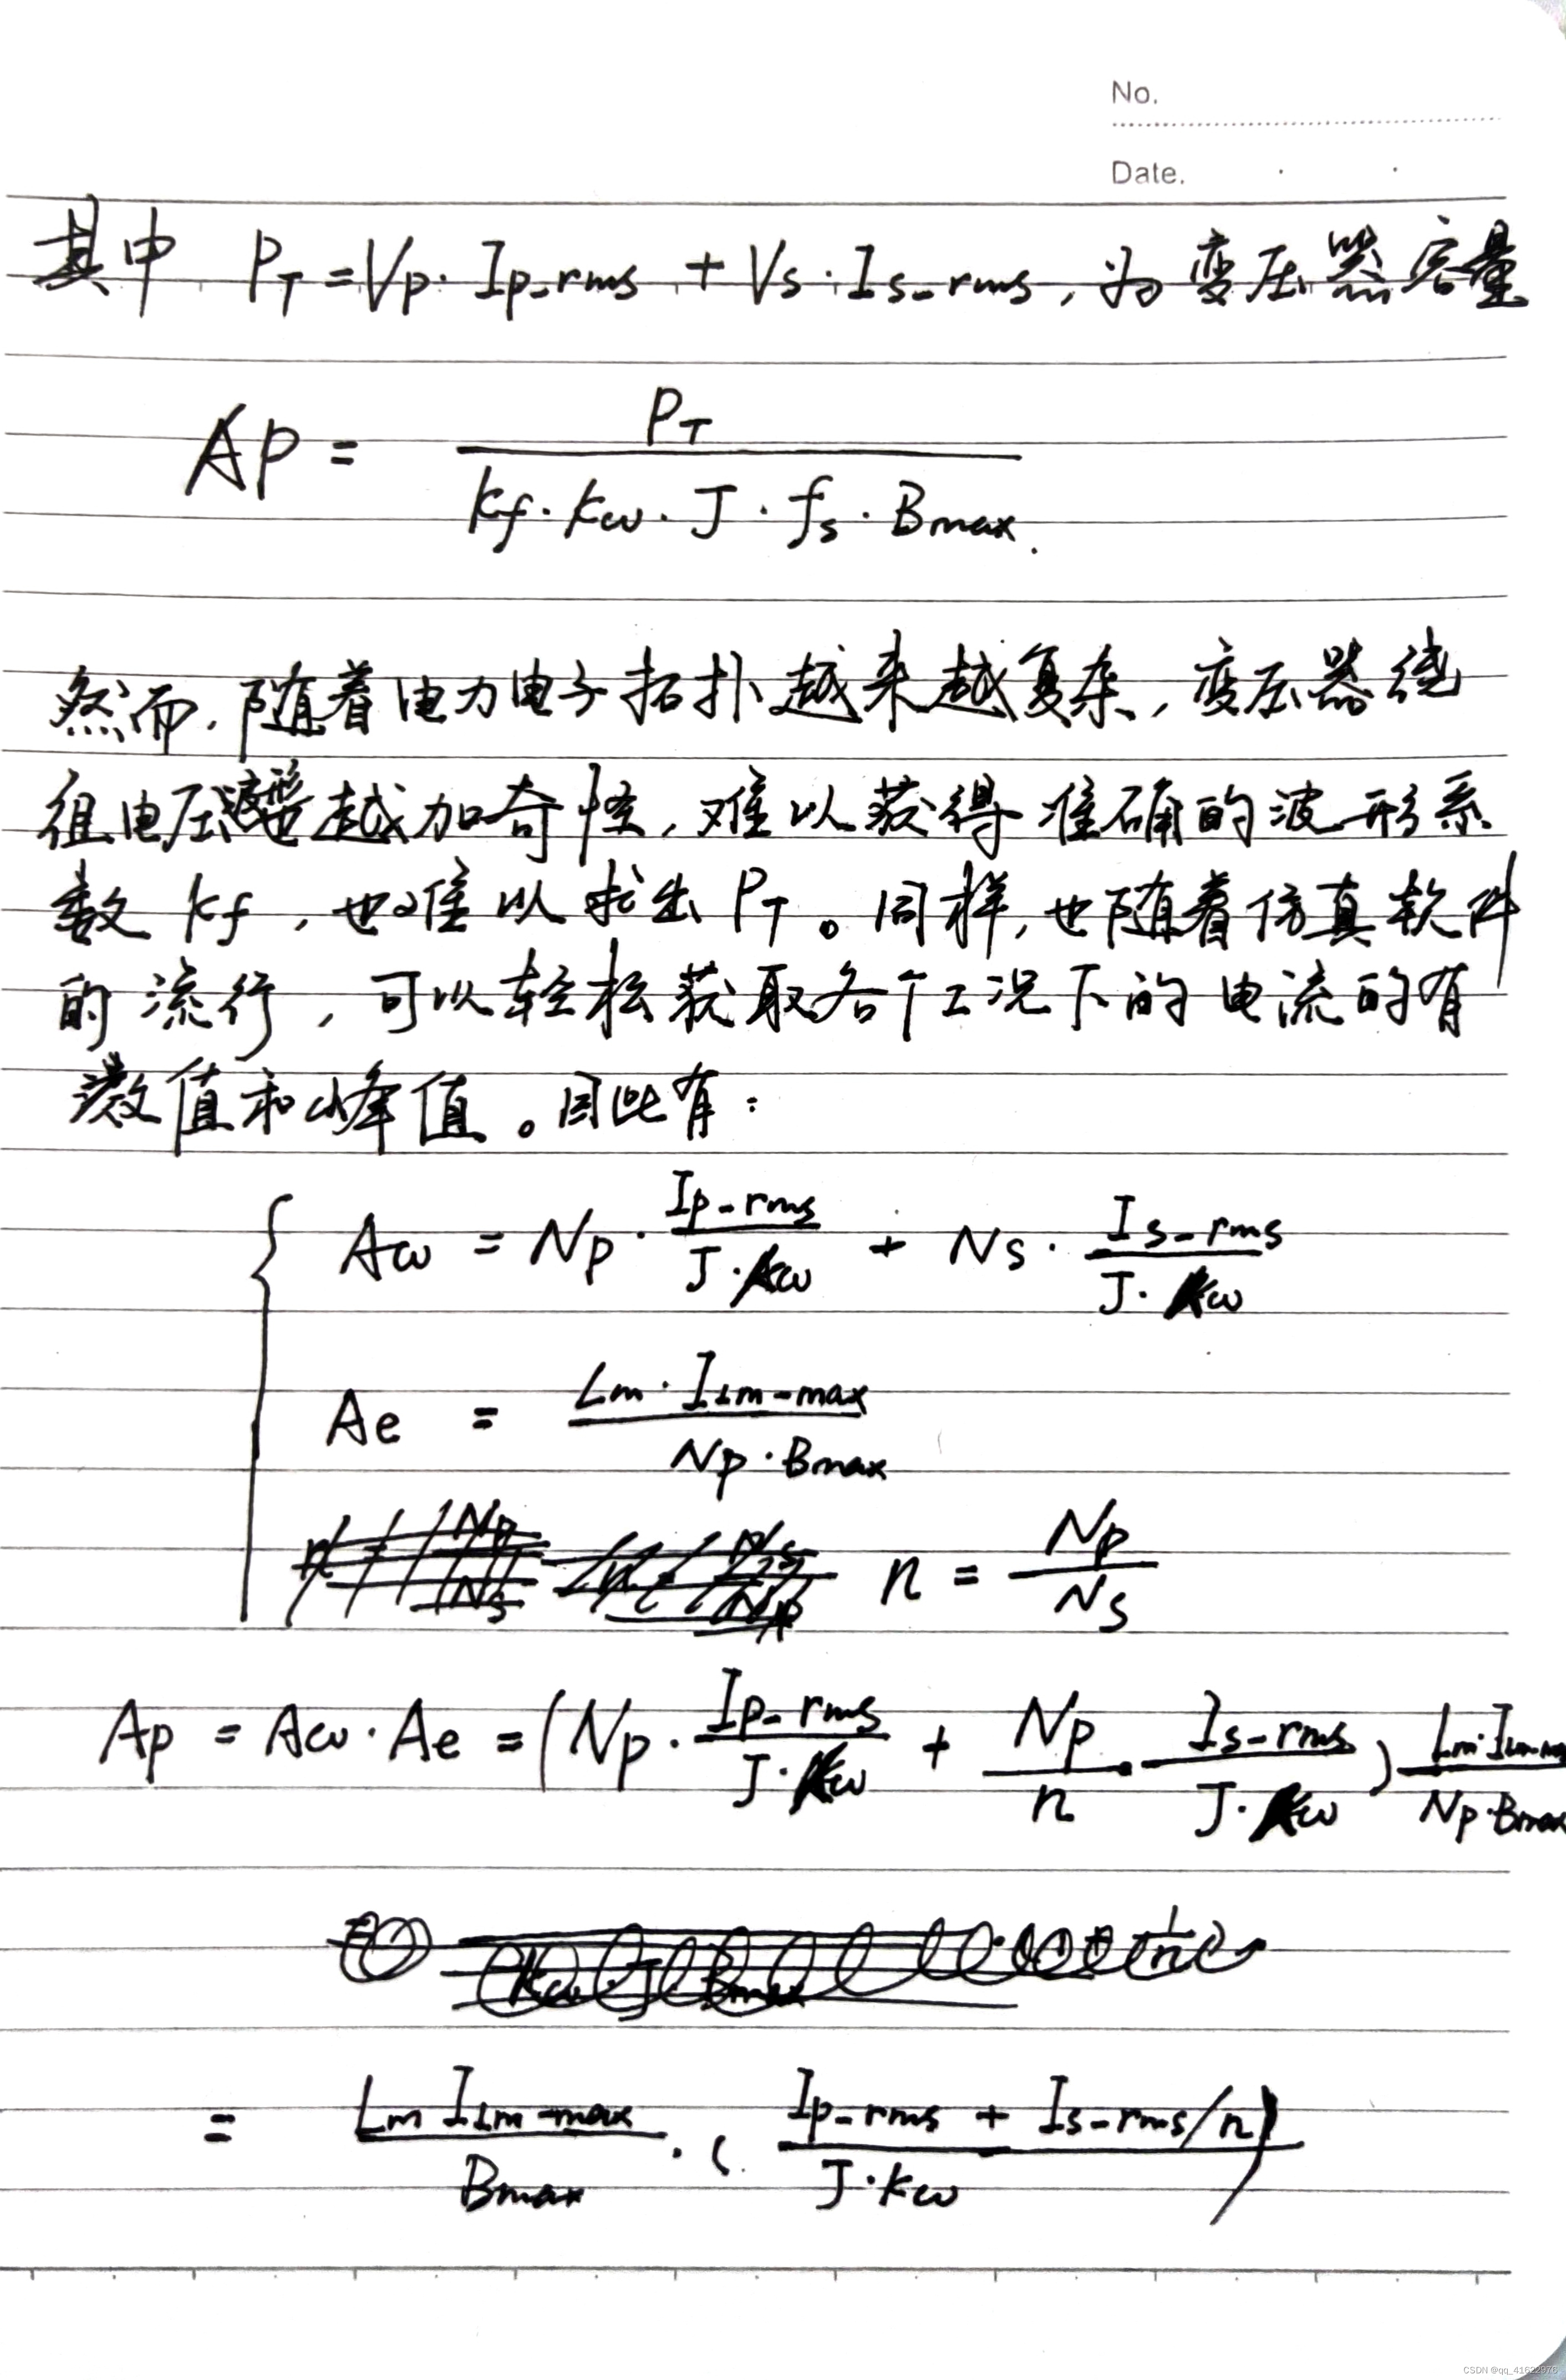 No.
Date.
其中 P_T = Vp · Ip_rms + Vs · Is_rms, 为变压器容量
AP = P_T / (kf · kw · J · fs · Bmax).
然而,随着电力电子拓扑越来越复杂,变压器绕
组电压波形越加奇怪,难以获得准确的波形系
数 kf ,也难以求出 P_T 。同样,也随着仿真软件
的流行,可以轻松获取各个工况下的电流的有
效值和峰值。因此有:
{ Aw = Np · Ip_rms / (J · kw) + Ns · Is_rms / (J · kw)
Ae = Lm · ILm-max / (Np · Bmax)
n = Np / Ns
Ap = Aw · Ae = (Np · Ip_rms / (J · kw) + Np / n · Is_rms / (J · kw)) Lm · ILm-ma / (Np · Bmax)
= Lm ILm-max / Bmax · ( (Ip_rms + Is_rms/n) / (J · kw) )
CSDN @qq_41632975